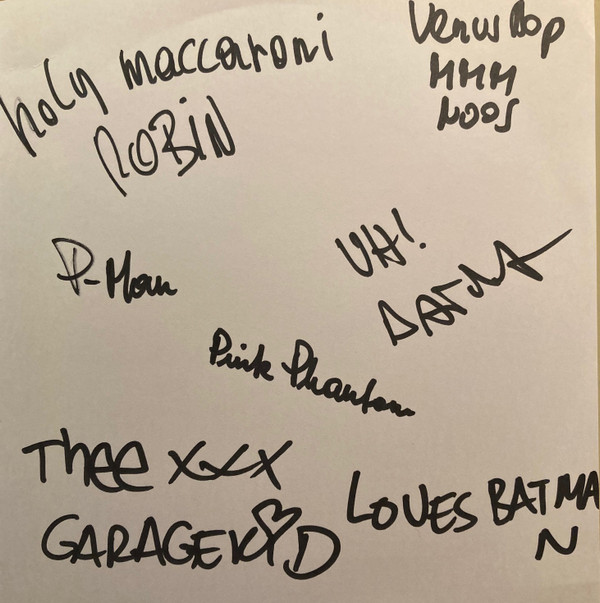 holy maccaroni
ROBIN
Venus Bop
MMM
NOOS
P-Man
UH!
Pink Phantom
Thee xxx
GARAGEKID
LOVES BATMA
N